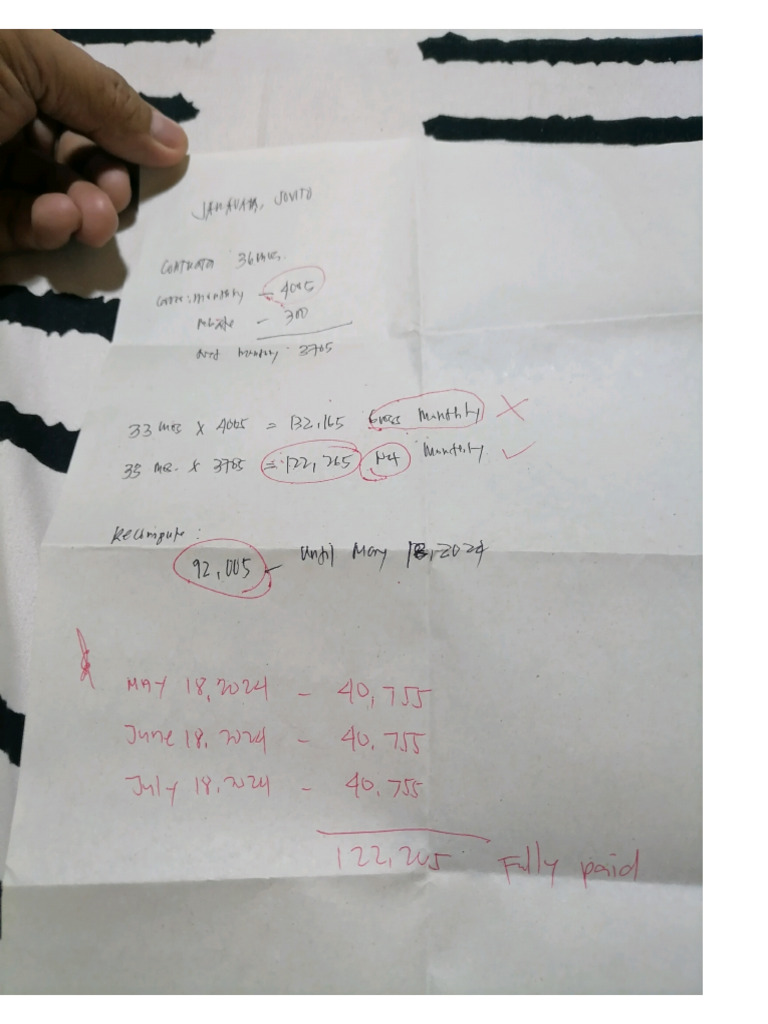 JOVITO
CONTRATA 36 mos.
Gross monthly - 4005
Rebate - 300
Net monthly 3705
33 mos x 4005 = 132,165 Gross Monthly X
33 mos. x 3705 = 122,265 Net Monthly ✓
Recompute:
92,005 - until May 18, 2024
MAY 18, 2024 - 40,755
June 18, 2024 - 40,755
July 18, 2024 - 40,755
122,265 Fully paid